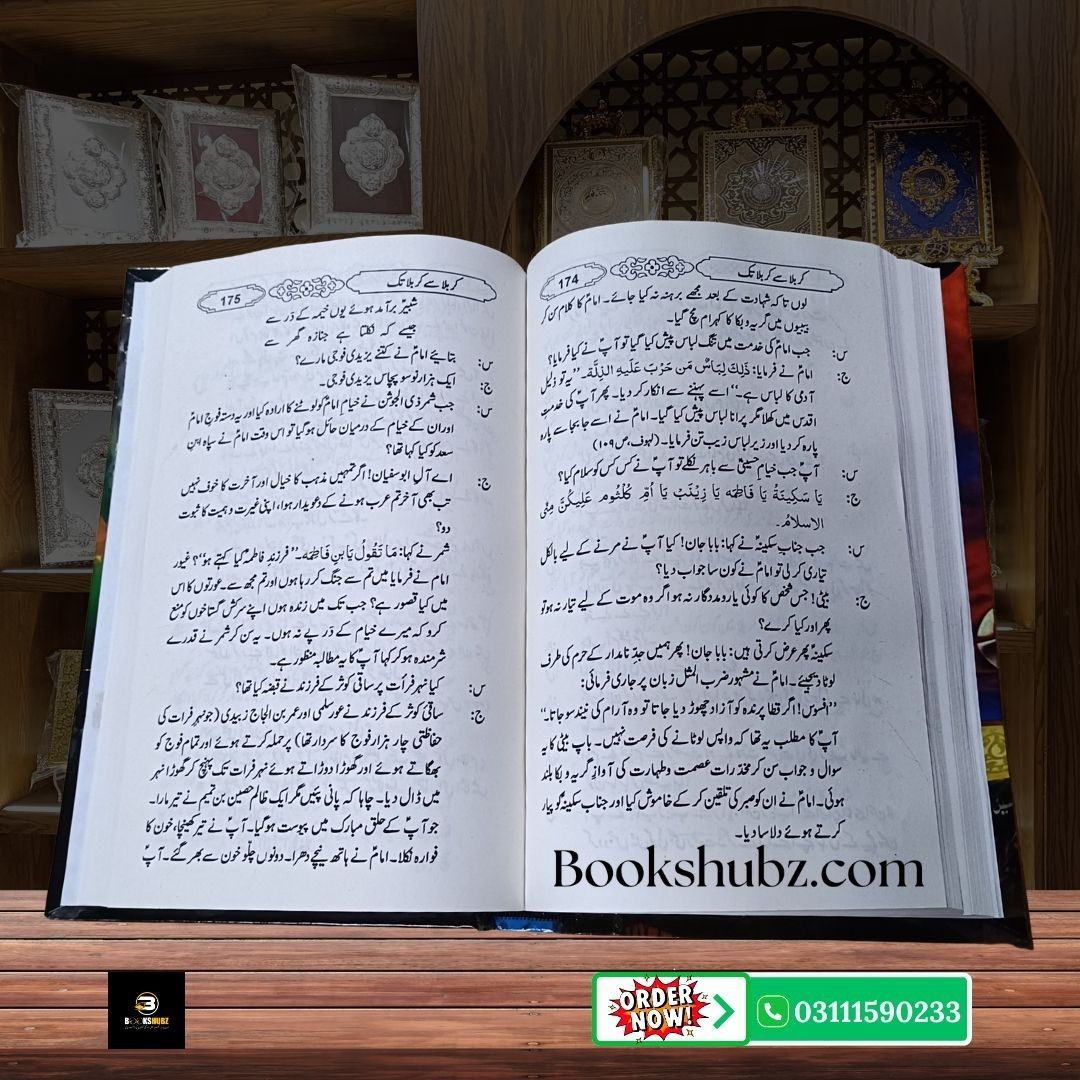 174
کربلا سے کربلا تک
لوں تاکہ شہادت کے بعد مجھے برہنہ نہ کیا جائے۔ امامؑ کا کلام سن کر
بیبیوں میں گریہ و بکا کا کہرام مچ گیا۔
س: جب امامؑ کی خدمت میں تنگ لباس پیش کیا گیا تو آپؑ نے کیا فرمایا؟
ج: امامؑ نے فرمایا: ذٰلِکَ لِبَاسُ مَن ضَرَبَ عَلَیهِ الذِلَّة۔ ’’یہ تو ذلیل
آدمی کا لباس ہے۔‘‘ اسے پہننے سے انکار کر دیا۔ پھر آپؑ کی خدمتِ
اقدس میں کھلا مگر پرانا لباس پیش کیا گیا۔ امامؑ نے اسے جا بجا سے پارہ
پارہ کر دیا اور زیرِ لباس زیب تن فرمایا۔ (لہوف، ص ۱۰۹)
س: آپؑ جب خیامِ حسینیؑ سے باہر نکلے تو آپؑ نے کس کس کو سلام کیا؟
ج: یَا سَکِینَةُ یَا فَاطِمَه یَا زِینَبُ یَا اُمِّ کُلثُوم عَلَیکُنَّ مِنِّی
الاسلامُ۔
س: جب جناب سکینہؑ نے کہا: بابا جان! کیا آپؑ نے مرنے کے لیے بالکل
تیاری کر لی تو امامؑ نے کون سا جواب دیا؟
ج: بیٹی! جس شخص کا کوئی یارومددگار نہ ہو اگر وہ موت کے لیے تیار نہ ہو تو
پھر اور کیا کرے؟
سکینہؑ پھر عرض کرتی ہیں: بابا جان! پھر ہمیں جدِّ نامدار کے حرم کی طرف
لوٹا دیجئے۔ امامؑ نے مشہور ضرب المثل زبان پر جاری فرمائی:
’’افسوس! اگر قطا پرندہ کو آزاد چھوڑ دیا جاتا تو وہ آرام کی نیند سو جاتا۔‘‘
آپؑ کا مطلب یہ تھا کہ واپس لوٹانے کی فرصت نہیں۔ باپ بیٹی کا یہ
سوال و جواب سن کر مخدراتِ عصمت و طہارت کی آوازِ گریہ و بکا بلند
ہوئی۔ امامؑ نے ان کو صبر کی تلقین کر کے خاموش کیا اور جناب سکینہؑ کو پیار
کرتے ہوئے دلاسا دیا۔
175
کربلا سے کربلا تک
شبیرؑ برآمد ہوئے یوں خیمہ کے دَر سے
جیسے کہ نکلتا ہے جنازہ گھر سے
س: بتایئے امامؑ نے کتنے یزیدی فوجی مارے؟
ج: ایک ہزار نو سو پچاس یزیدی فوجی۔
س: جب شمر ذی الجوشن نے خیامِ امامؑ کو لوٹنے کا ارادہ کیا اور یہ دستہ فوج امامؑ
اور ان کے خیام کے درمیان حائل ہو گیا تو اس وقت امامؑ نے سپاہِ ابنِ
سعد کو کیا کہا تھا؟
ج: اے آلِ ابوسفیان! اگر تمہیں مذہب کا خیال اور آخرت کا خوف نہیں
تب بھی آخر تم عرب ہونے کے دعویدار ہو، اپنی غیرت و حمیت کا ثبوت
دو؟
شمر نے کہا: مَا تَقُولُ یَابنِ فَاطِمَه۔ ’’فرزندِ فاطمہؑ کیا کہتے ہو‘‘؟ غیور
امام نے فرمایا میں تم سے جنگ کر رہا ہوں اور تم مجھ سے۔ عورتوں کا اس
میں کیا قصور ہے؟ جب تک میں زندہ ہوں اپنے سرکش گستاخوں کو منع
کرو کہ میرے خیام کے دَر پے نہ ہوں۔ یہ سن کر شمر نے قدرے
شرمندہ ہو کر کہا آپؑ کا یہ مطالبہ منظور ہے۔
س: کیا نہرِ فرأت پر ساقی کوثر کے فرزند نے قبضہ کیا تھا؟
ج: ساقی کوثر کے فرزند نے عور سلمی اور عمر بن الحجاج زبیدی (جو نہرِ فرات کی
حفاظتی چار ہزار فوج کا سردار تھا) پر حملہ کرتے ہوئے اور تمام فوج کو
بھگاتے ہوئے اور گھوڑا دوڑاتے ہوئے نہرِ فرات تک پہنچ کر گھوڑا نہر
میں ڈال دیا۔ چاہا کہ پانی پئیں مگر ایک ظالم حصین بن تمیم نے تیر مارا۔
جو آپؑ کے حلق مبارک میں پیوست ہو گیا۔ آپؑ نے تیر کھینچا، خون کا
فوارہ نکلا۔ امامؑ نے ہاتھ نیچے دھرا۔ دونوں چلّو خون سے بھر گئے۔ آپؑ
Bookshubz.com
BOOKSHUBZ
ORDER
NOW!
03111590233